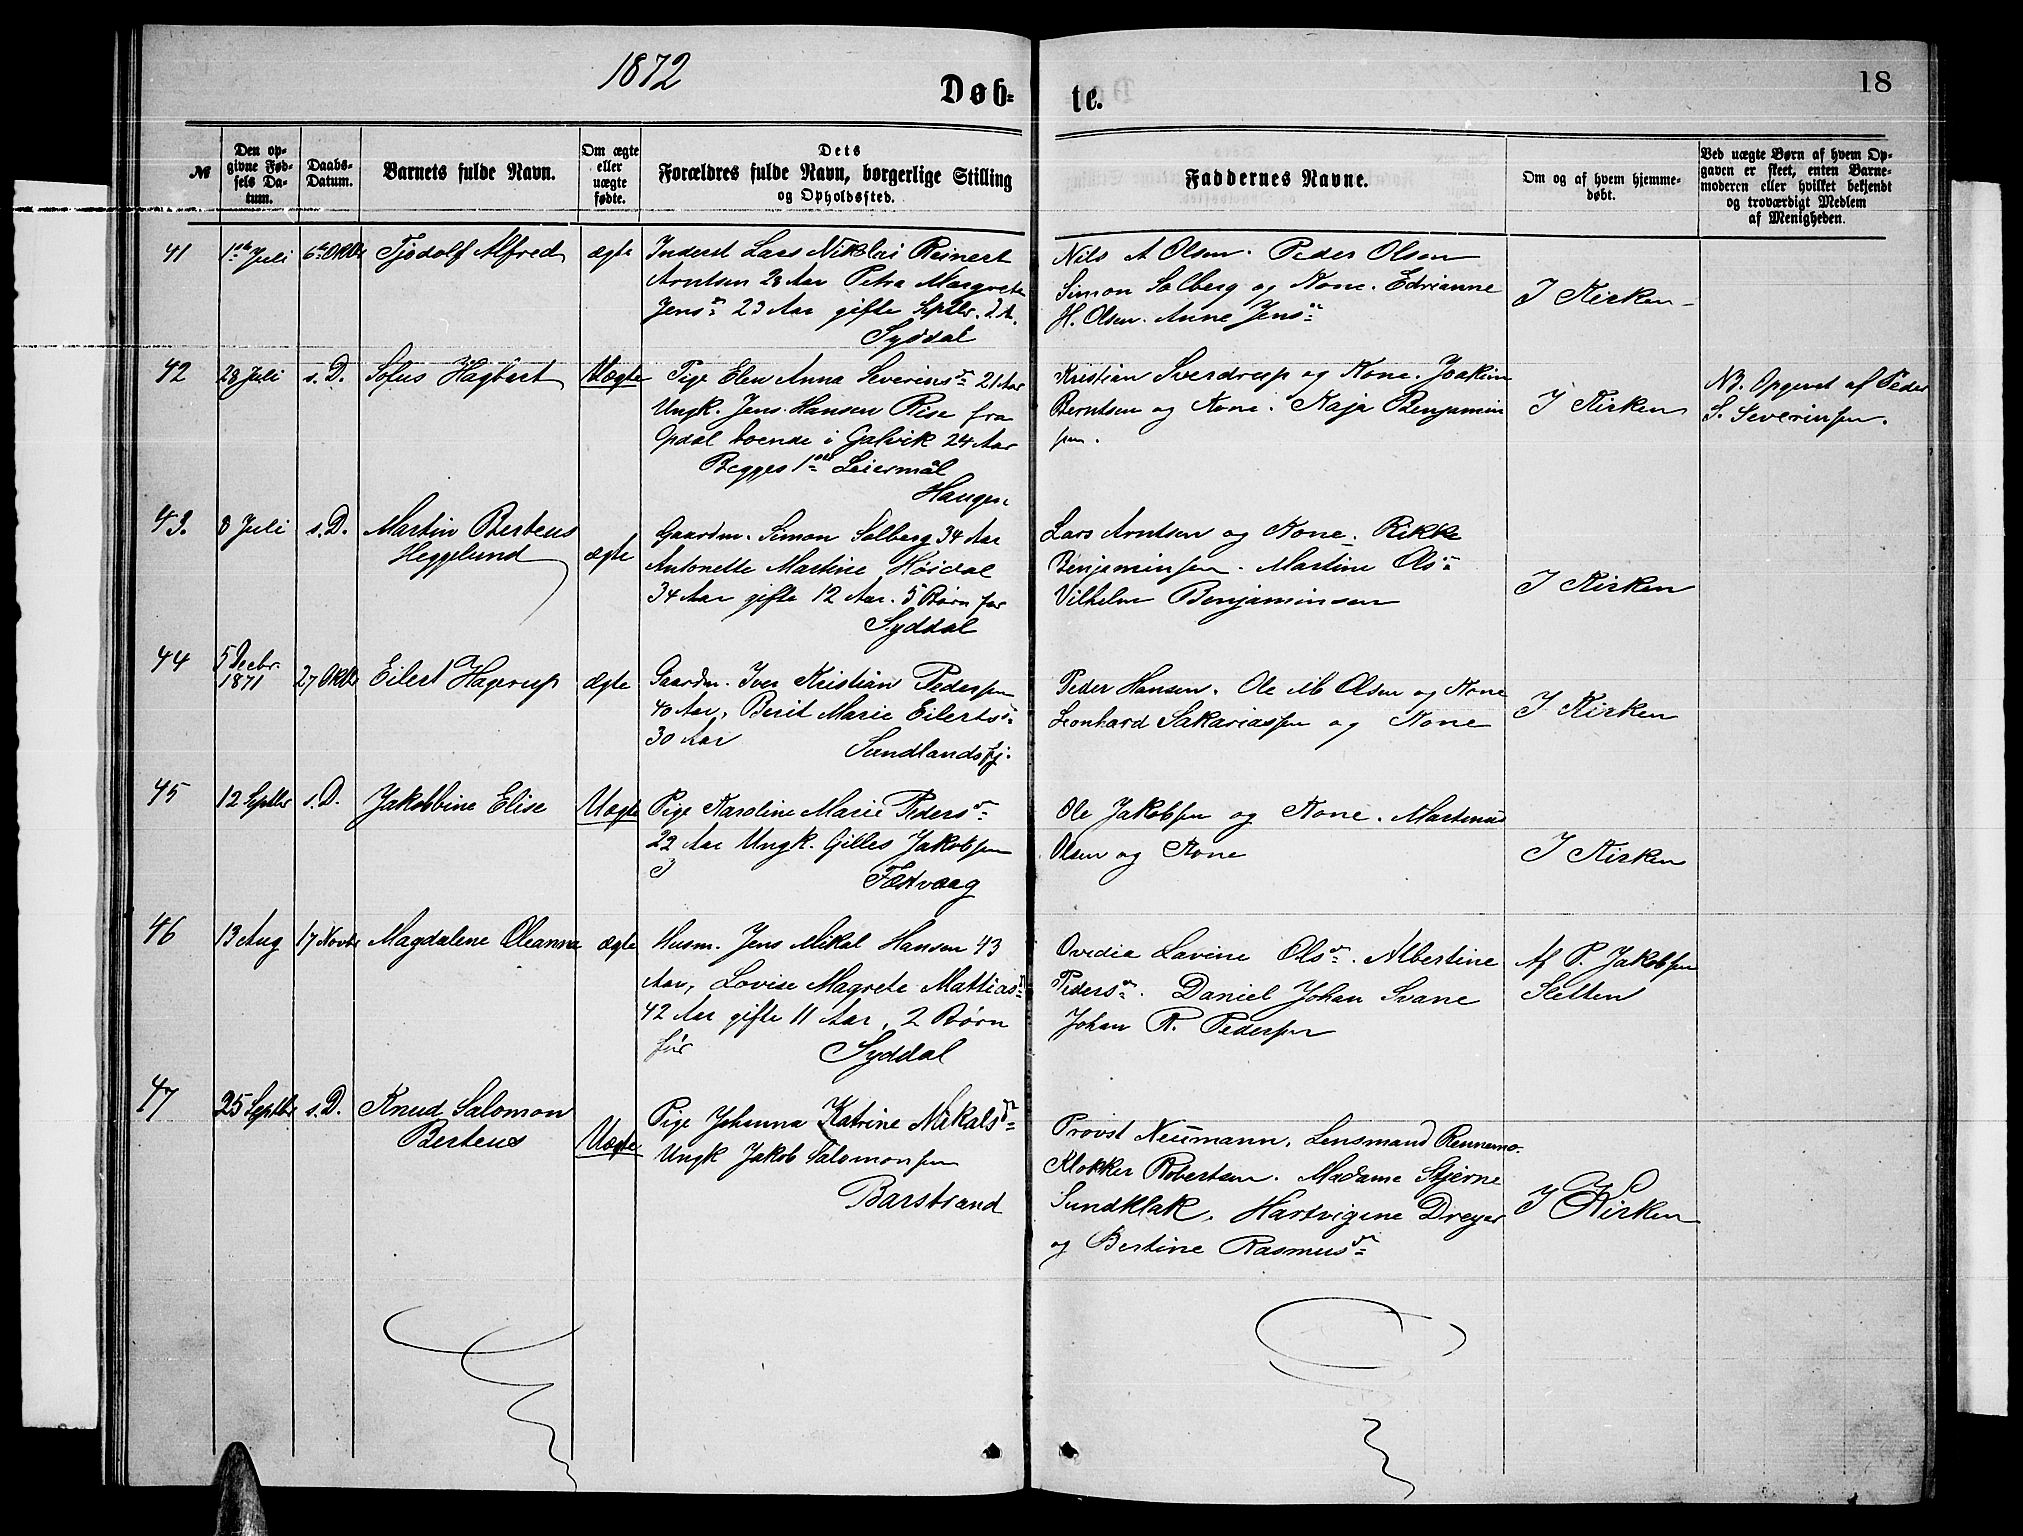 1872
Døb-
te.
18
№
Den op-
givne Fød-
sels Da-
tum.
Daabs-
Datum.
Barnets fulde Navn.
Om ægte
eller
uægte
fødte.
Dets
Forældres fulde Navn, borgerlige Stilling
og Opholdssted.
Faddernes Navne.
Om og af hvem hjemme-
døbt.
Ved uægte Børn af hvem Op-
gaven er skeet, enten Barne-
moderen eller hvilket bekjendt
og troværdigt Medlem
af Menigheden.
41
1ste Juli
6te Oktbr
Tjodolf Alfred
ægte
Inderst Lars Nikolai Reinert
Arntsen 28 Aar Petra Margrete
Jensdr 23 Aar gifte Septbr.
Syddal
Nils A Olsen. Peder Olsen
Simon Solberg og Kone. Edrianne
H. Olsen. Anne Jensdr
I Kirken
42
28 Juli
s. D.
Sofus Hagbart
Uægte
Pige Elen Anna Severinsdr 21 Aar
Ungk. Jens Hansen Rise fra
Opdal boende i Galvik 24 Aar
Begges 1ste Leiermål
Haugen
Kristian Sverdrup og Kone. Joakim
Berntsen og Kone. Kaja Benjamin
sen.
I Kirken
NB. Opgivet af Peder
S. Severinsen.
43.
8 Juli
s. D.
Martin Berteus
Heggelund
ægte
Gaardm. Simon Solberg 34 Aar
Antonette Martine Høidal
34 Aar gifte 12 Aar. 5 Børn før
Syddal
Lars Arntsen og Kone. Rikke
Benjaminsen. Martine Olsdr
Vilhelm Benjaminsen
I Kirken
44
5 Decbr.
1871
27 Oktbr
Eilert Hagerup
ægte
Gaardm. Iver Kristian Pedersen
40 Aar, Berit Marie Eilertsdr
30 Aar
Sundlandsfj.
Peder Hansen. Ole M Olsen og Kone
Leonhard Sakariassen og Kone
I Kirken
45
12 Septbr
s. D.
Jakobbine Elise
Uægte
Pige Karoline Marie Pedersdr
22 Aar Ungk. Gilles Jakobsen
Festvaag
Ole Jakobsen og Kone. Martinus
Olsen og Kone
I Kirken
46
13 Aug
17 Novbr
Magdalene Oleanna
ægte
Husm. Jens Mikal Hansen 43
Aar, Lovise Magrete Mattiasdr
42 Aar gifte 11 Aar, 2 Børn
før
Syddal
Ovedia Lavine Olsdr. Albertine
Pedersdr. Daniel Johan Svane
Johan R. Pedersen
Af P. Jakobsen
Sletten
47
25 Septbr
s. D.
Knud Salomon
Berteus
Uægte
Pige Johanna Katrine Nikalsdr
Ungk Jakob Salomonsen
Barstrand
Provst Neumann. Lensmand Rennemo.
Klokker Robertsen. Madame Stjerne
Sundklak. Hartvigine Dreyer
og Bertine Rasmusdr
I Kirken